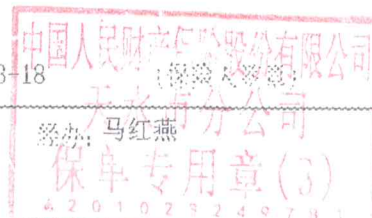 中国人民财产保险股份有限公司
3-18 (保险人签章)
天水市分公司
经办: 马红燕
保单专用章(3)